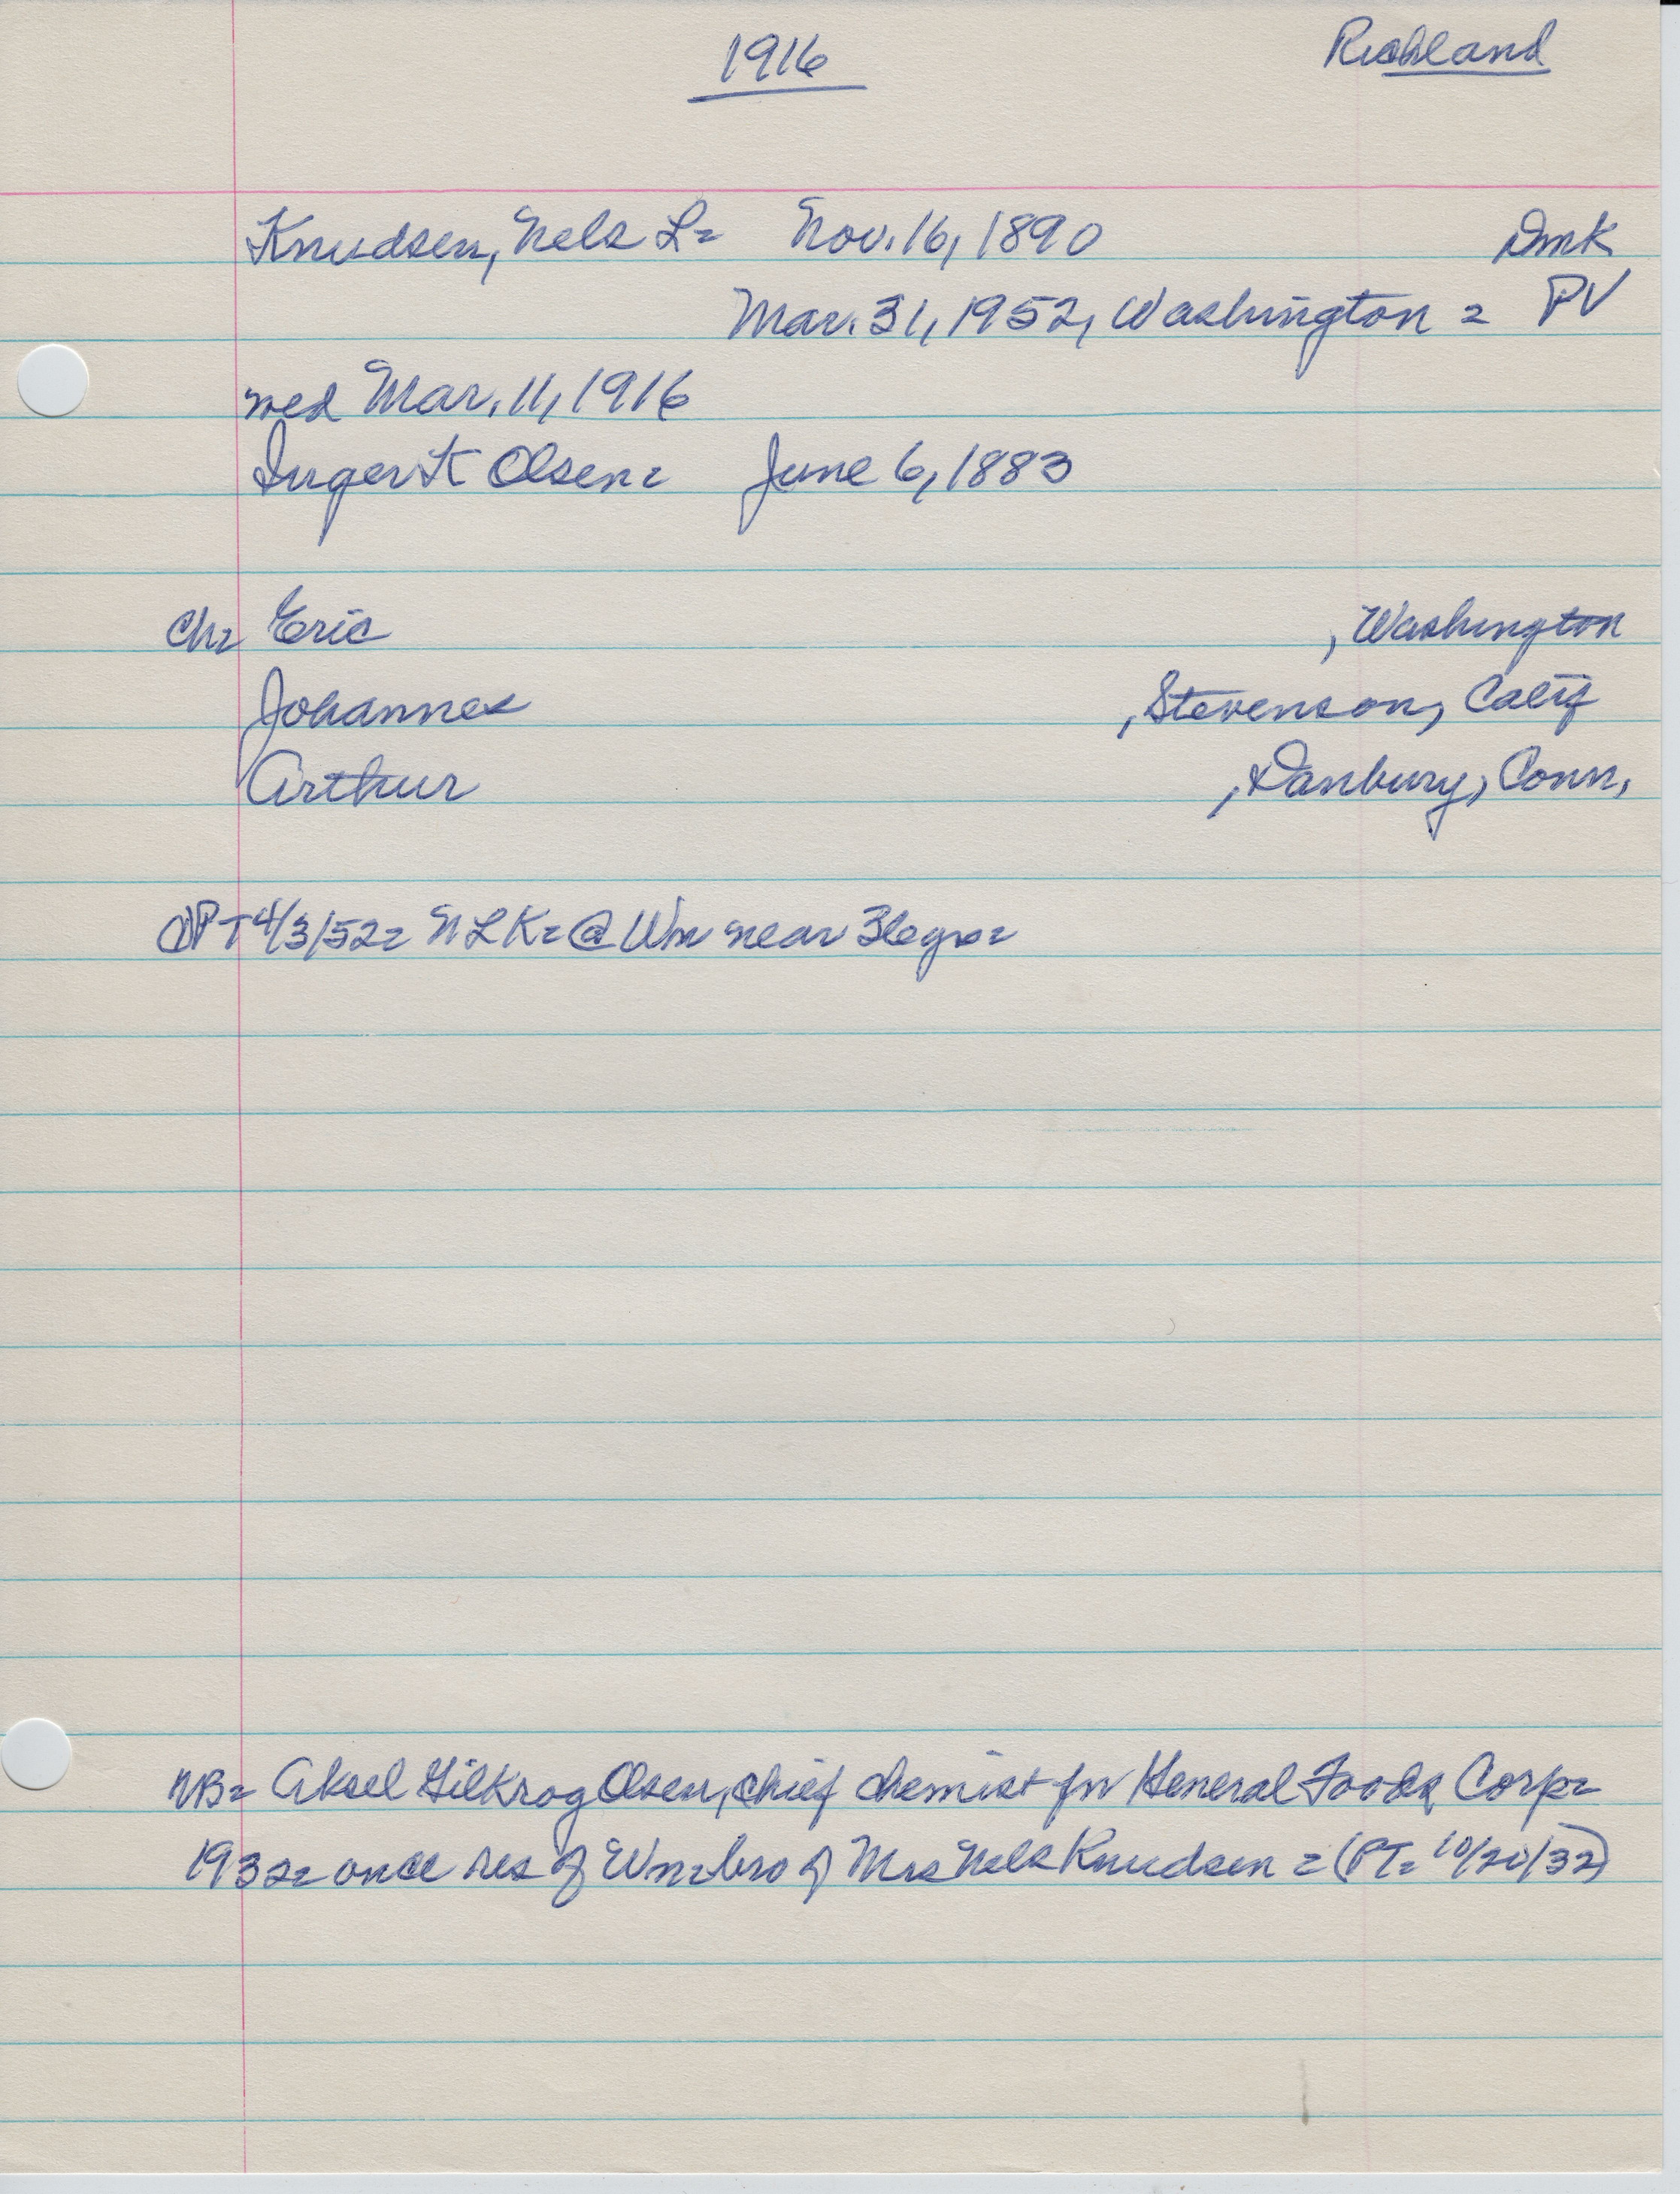 1916 Richland
Knudsen, Nels L= Nov. 16, 1890 Dmk
Mar. 31, 1952, Washington = PV
wed Mar. 11, 1916
Inger K Olsen= June 6, 1883
Ch= Eric , Washington
Johannes , Stevenson, Calif
Arthur , Danbury, Conn.
PT 4/3/52= NLK= @ Wm near 3 legs=
NB= Aksel Gilkrog Olsen, chief chemist for General Foods Corp=
1932= once res of Wm= bro of Mrs Nels Knudsen = (PT= 10/20/32)